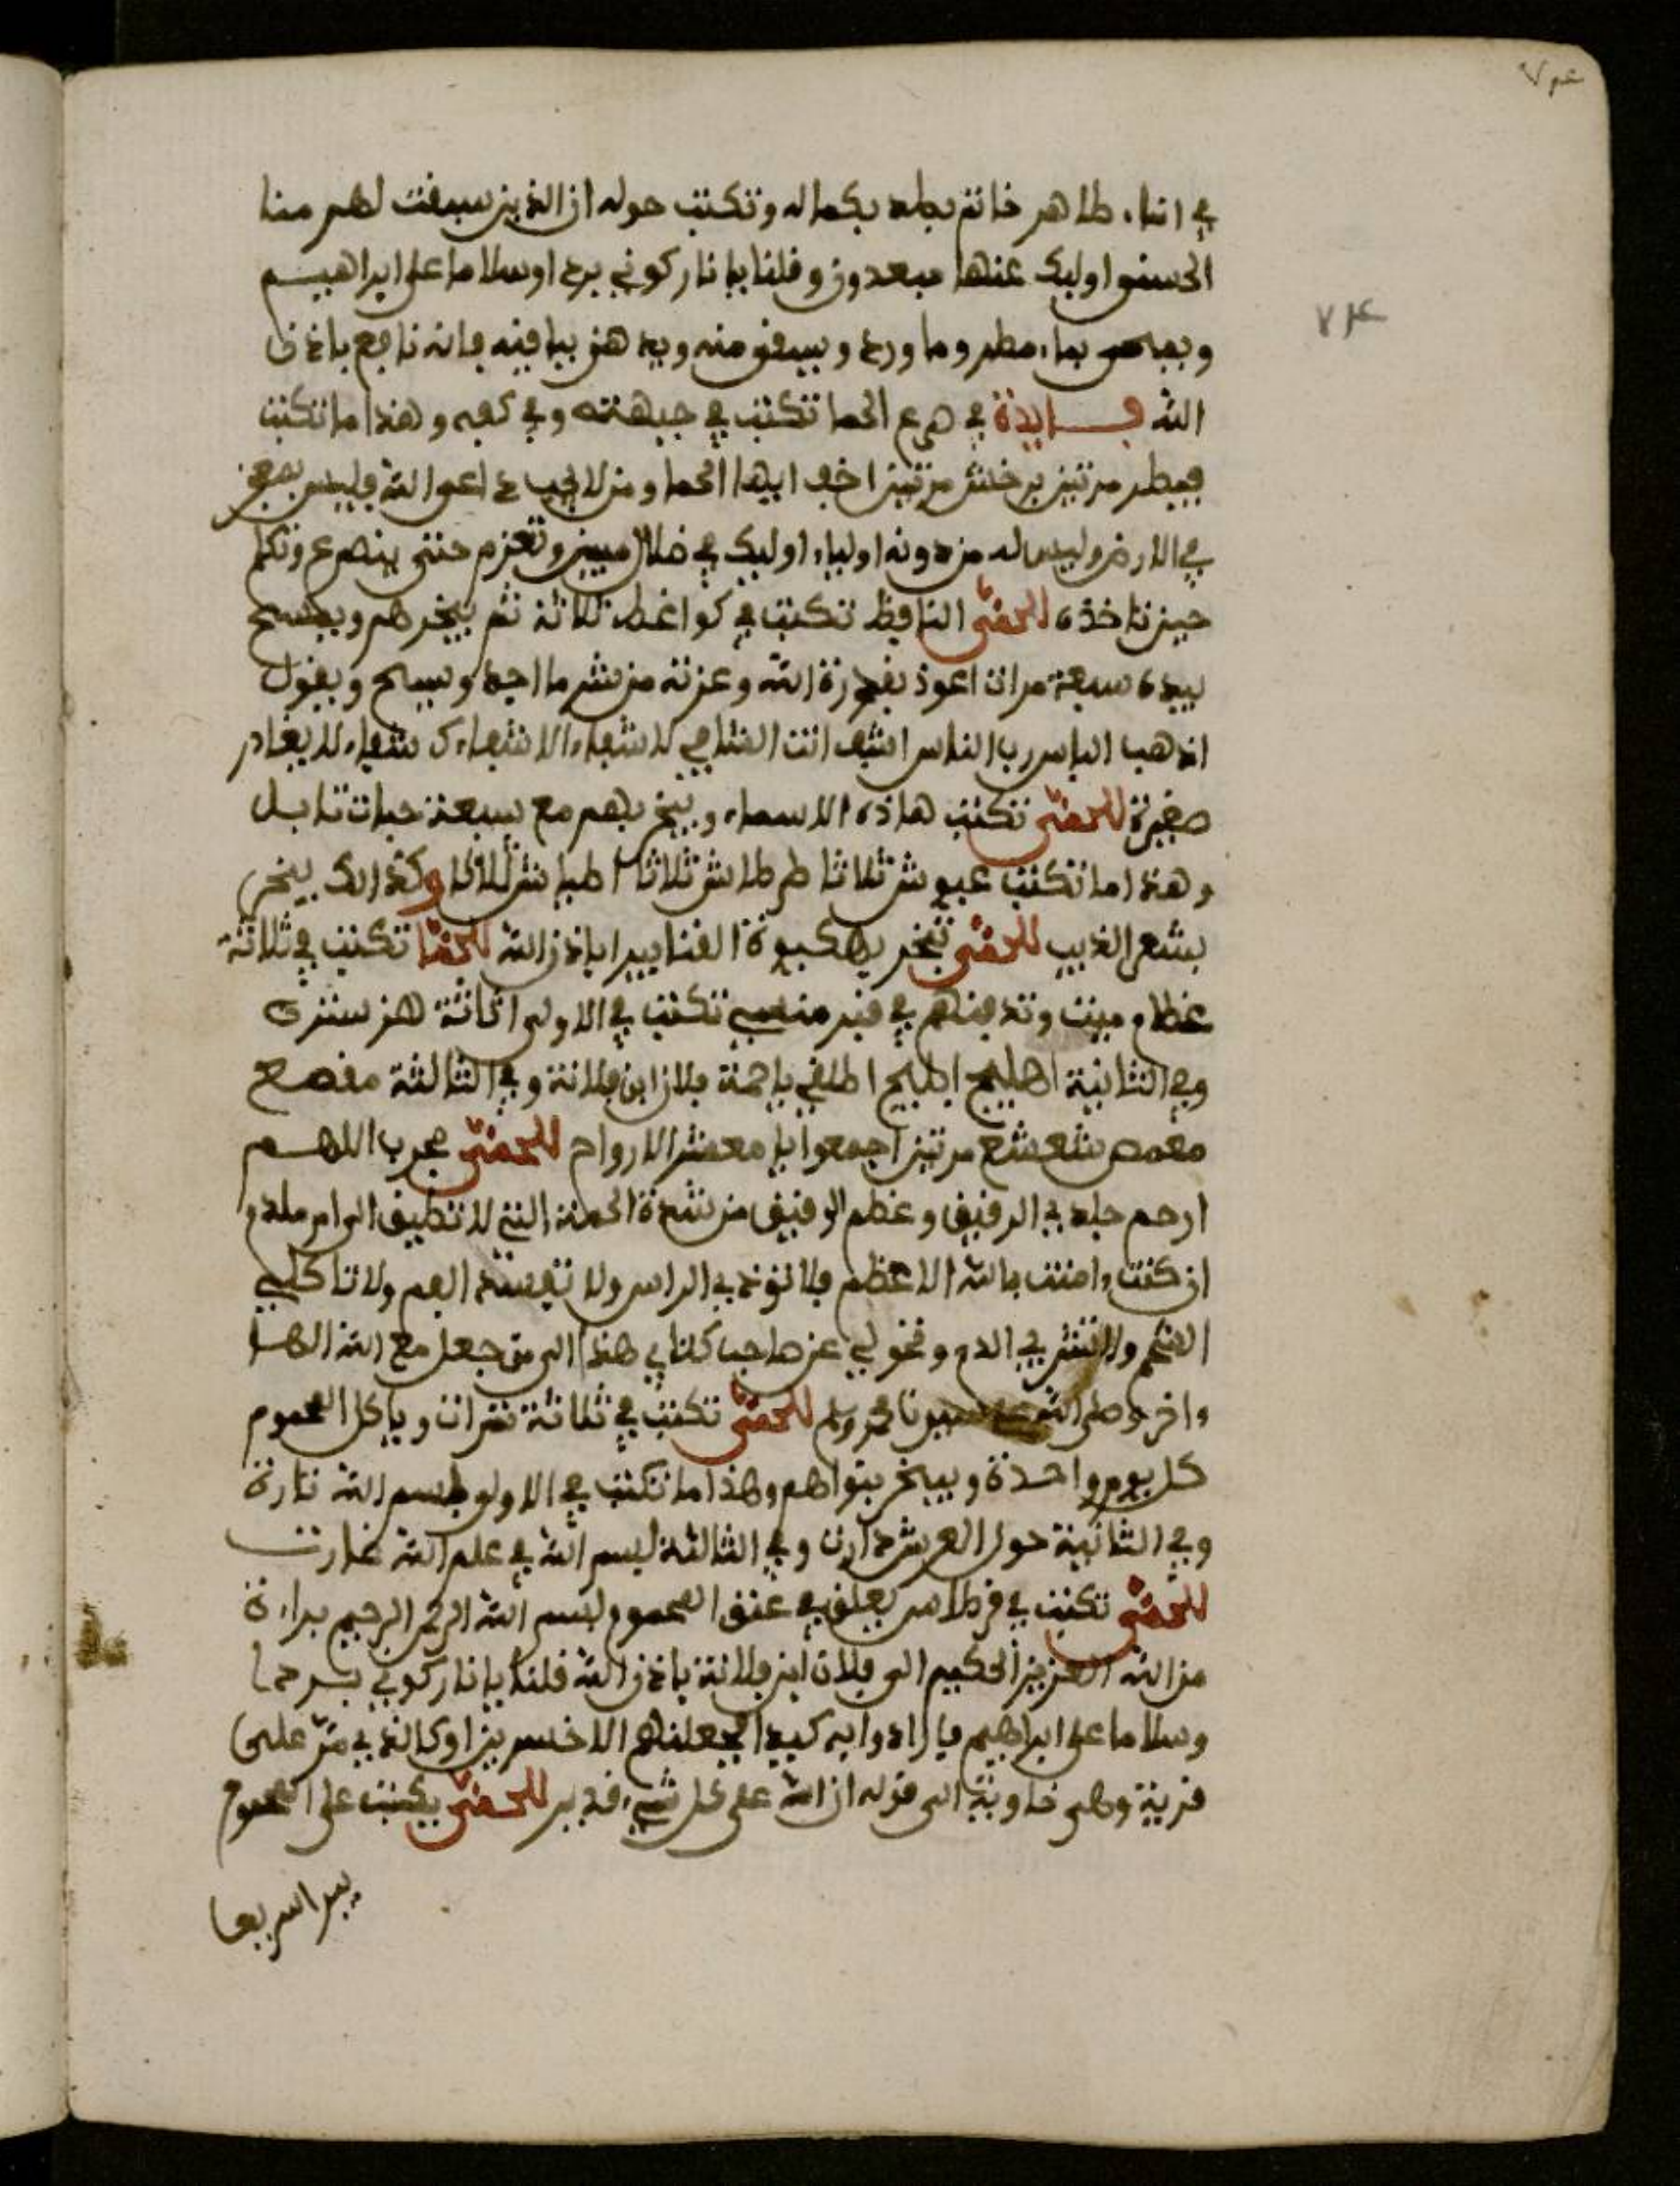 ٧٤
٧٤
في اناء طاهر خاتم بطد بكماله وتكتب حوله ان الذين سبقت لهم منا
الحسنى اوليك عنها مبعدون وقلنا يا نار كوني بردا وسلاما على ابراهيم
بماء مطر وما ورد ويسقى منه ويدهن بباقيه فانه نافع باذن
الله فايدة في صرع الحما تكتب في جبهته وفي كفه وهذا ما تكتب
مرتين برخش مرتين اخف ايها الحما ومن لا يجب داعي الله فليس بمعجز
في الارض وليس له من دونه اولياء اوليك في ضلال مبين وتعزم حتى ينصرع وتكلم
حين تاخذه للحمى النافظ تكتب في كواغط ثلاثة ثم يبخرهم ويمسح
بيده سبعة مرات اعوذ بقدرة الله وعزته من شر ما اجد ويمسح ويقول
اذهب الباس رب الناس اشف انت الشافي لا شفاء الا شفاءك شفاء لا يغادر
صغيرة للحمى تكتب هاذه الاسماء ويبخر بهم مع سبعة حبات تابل
وهذا ما تكتب عبوش ثلاثا طرطاش ثلاثا اطياش ثلاثا وكذالك يبخر
بشعر الذيب للحمى تبخر القنا باذن الله للحما تكتب في ثلاثة
عظام ميت وتدفنهم في قبر منسي تكتب في الاولى
وفي الثانية اهليج ابليج اطلقي يا حمة فلان ابن فلانة وفي الثالثة
شعشع مرتين اجمعوا يا معشر الارواح للحمى مجرب اللهم
ارحم جلدي الرقيق وعظم الرقيق من شدة الحمة التي لا تطيق الى ام ملدم
ان كنت ءامنت بالله الاعظم فلا توذي الراس ولا تفسد الفم ولا تاكلي
اللحم ولا تشربي الدم وتحولي عن صاحب كتابي هذا الى من جعل مع الله الها
ءاخر وصلى الله على سيدنا محمد وسلم للحمى تكتب في ثلاثة تمرات وياكل المحموم
كل يوم واحدة ويبخر بنواهم وهذا ما تكتب في الاولى بسم الله نارة
وفي الثانية حول العرش دارت وفي الثالثة بسم الله في علم الله غارت
للحمى تكتب في قرطاس يعلق في عنق المحموم بسم الله الرحمن الرحيم براءة
من الله العزيز الحكيم الى فلان ابن فلانة باذن الله قلنا يا نار كوني بردا
وسلاما على ابراهيم فاراودا به كيدا فجعلناهم الاخسرين او كالذي مر على
قرية وهي خاوية الى قوله ان الله على كل شيء قدير للحمى يكتب على المحموم
يبرا سريعا